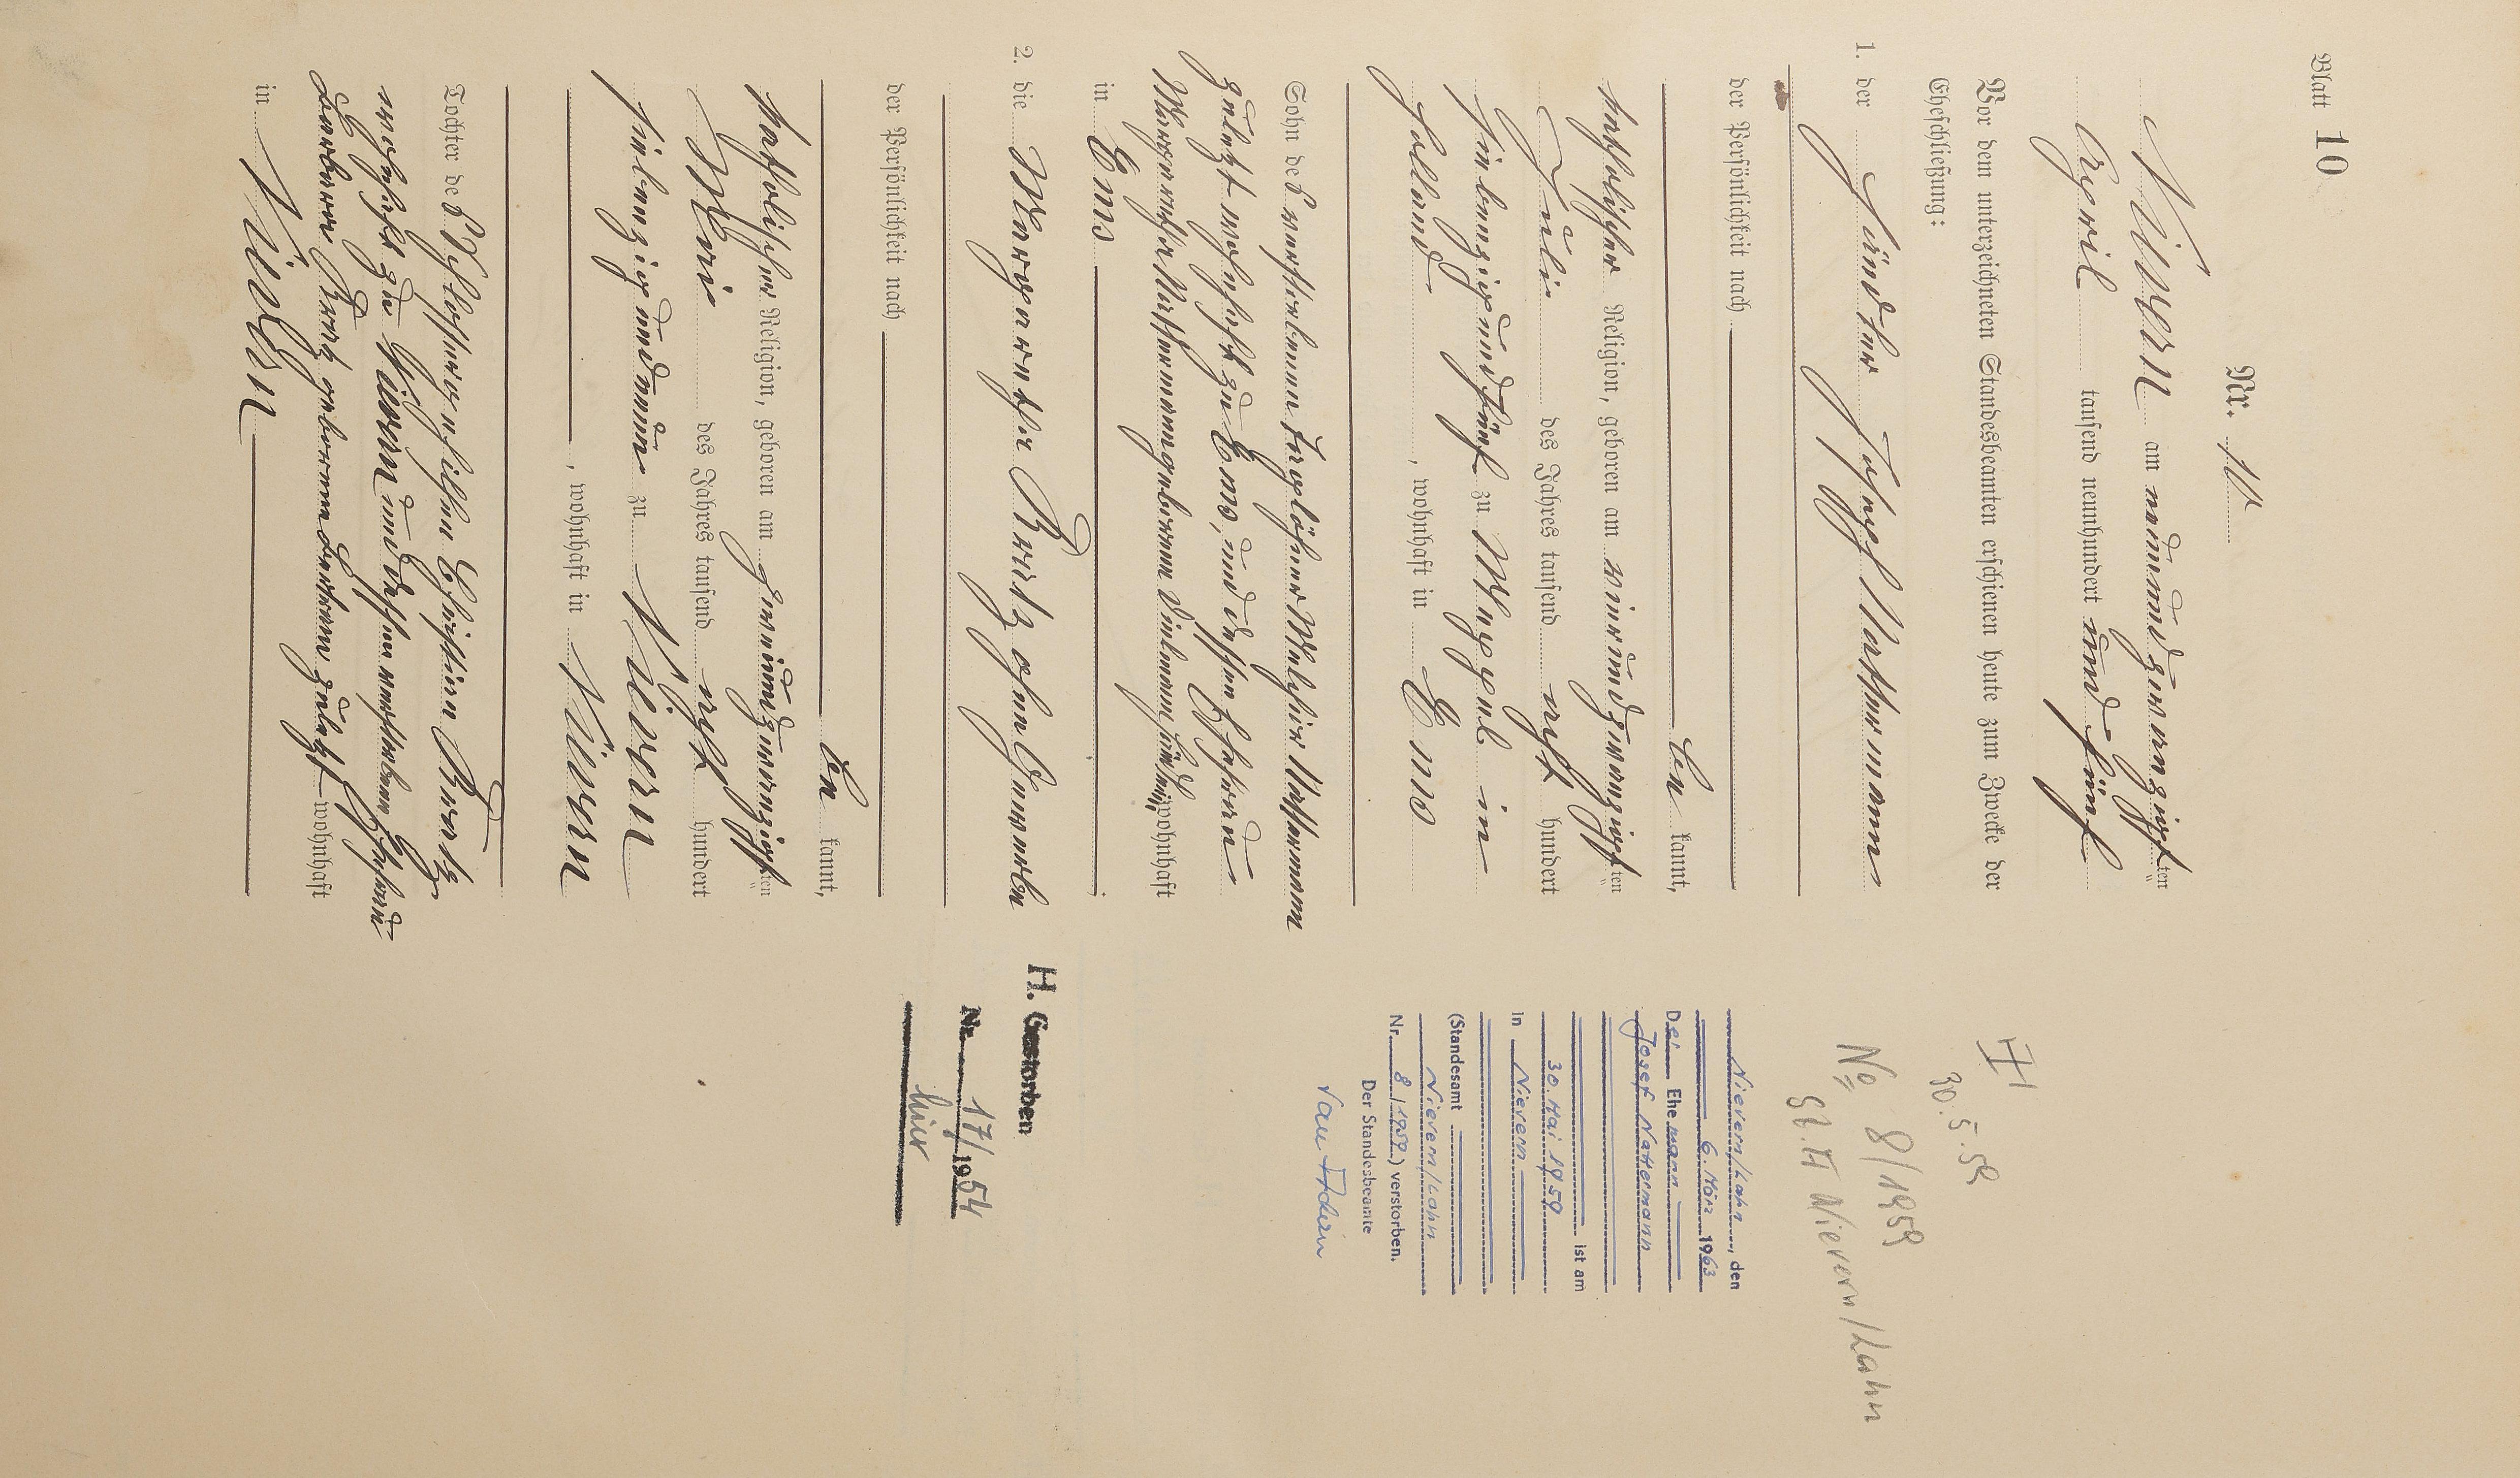 Blatt 10
Nr. 10
Nievern am neunundzwanzigsten
April tausend neunhundert und fünf
Vor dem unterzeichneten Standesbeamten erschienen heute zum Zwecke der
Eheschließung:
1. der Händler Josef Nattermann
der Persönlichkeit nach
be kannt,
katholischer Religion, geboren am vierundzwanzigsten
Juli des Jahres tausend acht hundert
siebenzigundfünf zu Meppel in
Holland, wohnhaft in Ems
Sohn des verstorbenen Tagelöhner Melchior Nattermann
zuletzt wohnhaft zu Ems, und dessen Ehefrau
Margarethe Nattermann geborene wohnhaft
in Ems
2. die Margaretha Bretz ohne Gewerbe
der Persönlichkeit nach
be kannt,
katholischer Religion, geboren am zweiundzwanzigsten
Mai des Jahres tausend acht hundert
siebenzigundneun zu Nievern
, wohnhaft in Nievern
Tochter des Schlossergehilfen Christian Bretz
wohnhaft zu Nievern und dessen verstorbenen Ehefrau
Barbara Bretz geborenen zuletzt wohnhaft
in Nievern
H
30.5.59
No 8/1959
St. A Nievern/Lahn
Nievern/Lahn, den
6. März 1963
Der Ehemann
Josef Nattermann
ist am
30. Mai 1959
in Nievern
(Standesamt
Nievern/Lahn
Nr. 8/1959) verstorben.
Der Standesbeamte
H. Gestorben
Nr. 17/1954
hier